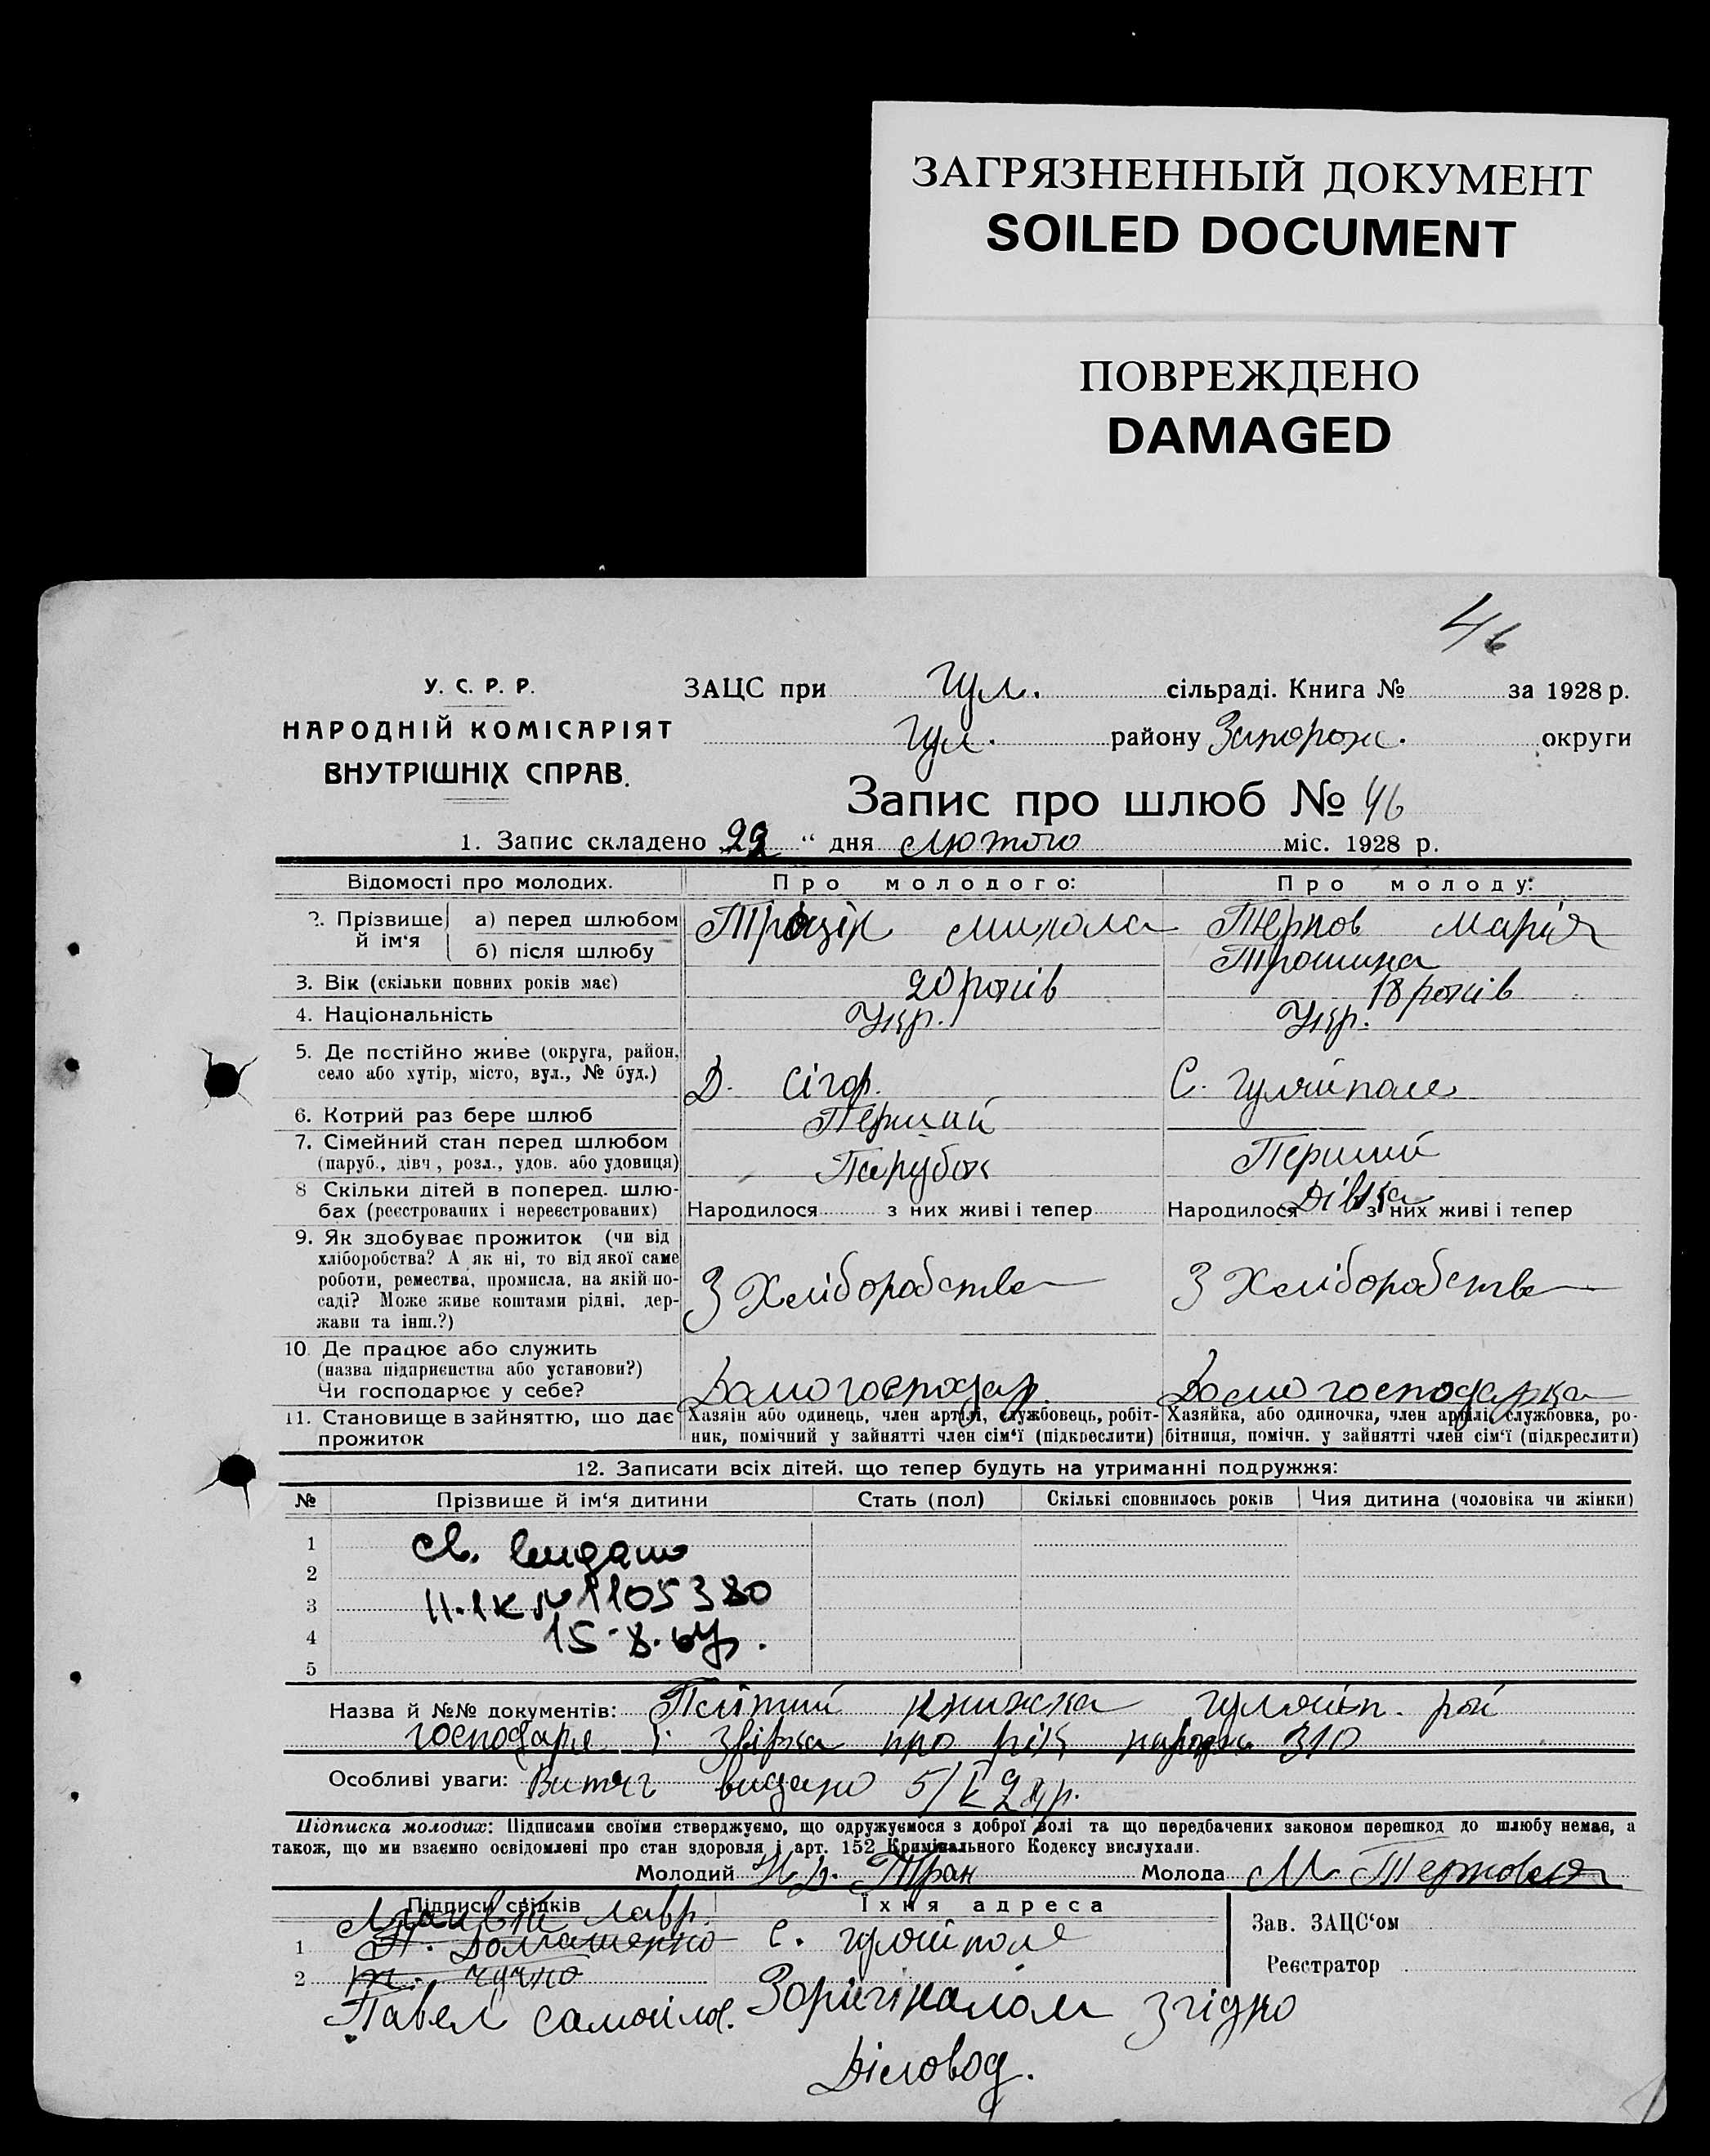 ЗАГРЯЗНЕННЫЙ ДОКУМЕНТ
SOILED DOCUMENT
ПОВРЕЖДЕНО
DAMAGED
46
У. С. Р. Р.
НАРОДНІЙ КОМІСАРІЯТ
ВНУТРІШНІХ СПРАВ.
ЗАЦС при Гул. сільраді. Книга № за 1928 р.
Гул. району Запорож. округи
Запис про шлюб № 46
1. Запис складено 22 “ дня лютого міс. 1928 р.
Відомості про молодих. Про молодого: Про молоду:
2. Прізвище й ім'я а) перед шлюбом Микола Тернов Марія
б) після шлюбу
3. Вік (скільки повних років має) 20 років 18 років
4. Національність Укр. Укр.
5. Де постійно живе (округа, район, село або хутір, місто, вул., № буд.) С. Гуляйполе
6. Котрий раз бере шлюб Перший Перший
7. Сімейний стан перед шлюбом (паруб., дівч., розл., удов. або удовиця) Парубок Дівка
8 Скільки дітей в поперед. шлюбах (реєстрованих і нереєстрованих) Народилося з них живі і тепер Народилося з них живі і тепер
9. Як здобуває прожиток (чи від хліборобства? А як ні, то від якої саме роботи, ремества, промисла, на якій посаді? Може живе коштами рідні, держави та інш.?) З Хліборобства З Хліборобства
10. Де працює або служить (назва підприєнства або установи?) Чи господарює у себе? Домогосподар Домогосподарка
11. Становище в зайняттю, що дає прожиток Хазяін або одинець, член артілі, службовець, робітник, помічний у зайнятті член сім‘ї (підкреслити) Хазяйка, або одиночка, член артілі, службовка, робітниця, помічн. у зайнятті член сім‘ї (підкреслити)
12. Записати всіх дітей, що тепер будуть на утриманні подружжя:
№ Прізвище й ім'я дитини Стать (пол) Скількі сповнилось років Чия дитина (чоловіка чи жінки)
1 св. видано
2
3 № 1105380
4 15-8.
5
Назва й №№ документів: книжка Гуляйп.
господаря і про рік 310
Особливі уваги: Витяг видано
Підписка молодих: Підписами своїми стверджуємо, що одружуємося з доброї волі та що передбачених законом перешкод до шлюбу немає, а
також, що ми взаємно освідомлені про стан здоровля і арт. 152 Кримінального Кодексу вислухали.
Молодий Молода М
Підписи свідків Їхня адреса
Лавр.
1 С. Гуляйполе
2
Зав. ЗАЦС‘ом
Реєстратор
Павел Самойлов. Зоригіналом згідно
Діловод.